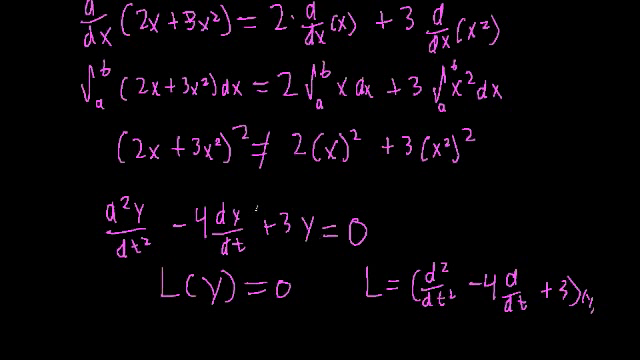 d/dx (2x + 3x²) = 2 · d/dx (x) + 3 d/dx (x²)
∫ₐᵇ (2x + 3x²) dx = 2 ∫ₐᵇ x dx + 3 ∫ₐᵇ x² dx
(2x + 3x²)² ≠ 2(x)² + 3(x²)²
d²y/dt² - 4 dy/dt + 3y = 0
L(y) = 0 L = (d²/dt² - 4 d/dt + 3)